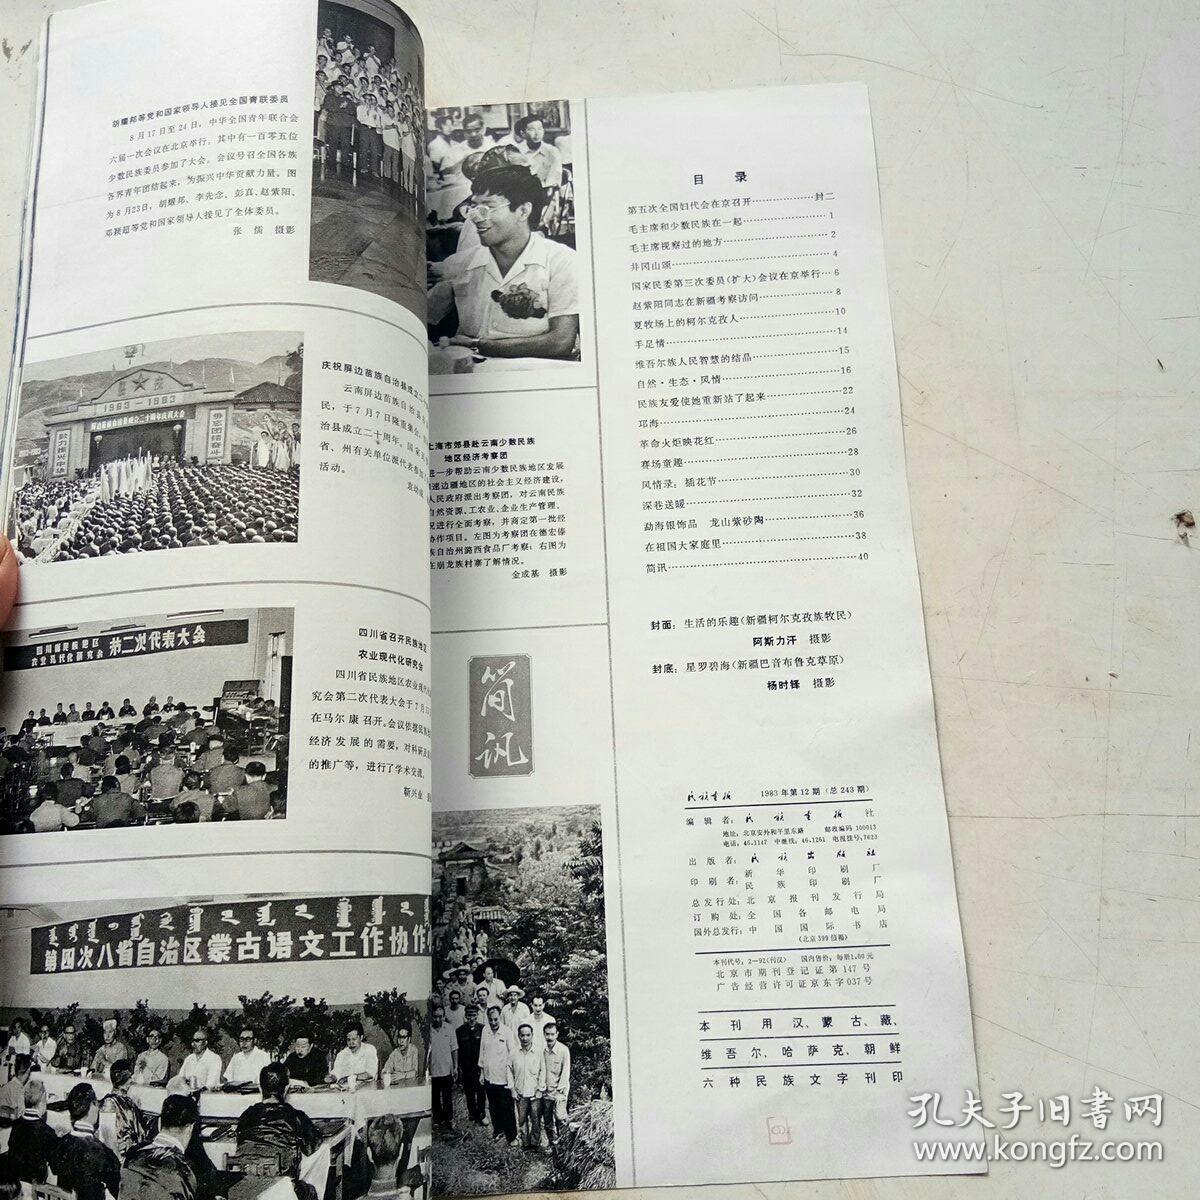 胡耀邦等党和国家领导人接见全国青联委员
8月17日至24日，中华全国青年联合会
六届一次会议在北京举行，其中有一百零五位
少数民族委员参加了大会。会议号召全国各族
各界青年团结起来，为振兴中华贡献力量。图
为8月23日，胡耀邦、李先念、彭真、赵紫阳、
邓颖超等党和国家领导人接见了全体委员。
张儒 摄影
1963—1983
屏边苗族自治县成立二十周年庆祝大会
致力振兴中华
毋忘团结奋斗
庆祝屏边苗族自治县成立二十
云南屏边苗族自治县各
民，于7月7日隆重集会，
治县成立二十周年。国家民
省、州有关单位派代表参加
活动。
四川省民族地区
农业现代化研究会 第二次代表大会
四川省召开民族地区
农业现代化研究会
四川省民族地区农业现代
究会第二次代表大会于7月
在马尔康召开。会议依据民
经济发展的需要，对科研
的推广等，进行了学术交流。
靳兴业
第四次八省自治区蒙古语文工作协作
上海市郊县赴云南少数民族
地区经济考察团
进一步帮助云南少数民族地区发展
速边疆地区的社会主义经济建设，
人民政府派出考察团，对云南民族
自然资源、工农业、企业生产管理、
况进行全面考察，并商定第一批经
协作项目。左图为考察团在德宏傣
族自治州潞西食品厂考察；右图为
在崩龙族村寨了解情况。
金成基 摄影
简讯
目录
第五次全国妇代会在京召开………………封二
毛主席和少数民族在一起………………1
毛主席视察过的地方………………2
井冈山颂………………4
国家民委第三次委员（扩大）会议在京举行…6
赵紫阳同志在新疆考察访问………………8
夏牧场上的柯尔克孜人………………10
手足情………………14
维吾尔族人民智慧的结晶………………15
自然·生态·风情………………16
民族友爱使她重新站了起来………………22
邛海………………24
革命火炬映花红………………26
赛场童趣………………28
风情录：插花节………………30
深巷送暖………………32
勐海银饰品 龙山紫砂陶………………36
在祖国大家庭里………………38
简讯………………40
封面：生活的乐趣（新疆柯尔克孜族牧民）
阿斯力汗 摄影
封底：星罗碧海（新疆巴音布鲁克草原）
杨时铎 摄影
民族画报 1983年第12期（总243期）
编辑者：民族画报社
地址：北京安外和平里东路 邮政编码100013
电话：46.1147 中继线：46.1261 电报挂号：7623
出版者：民族出版社
印刷者：新华印刷厂
民族印刷厂
总发行处：北京报刊发行局
订购处：全国各邮电局
国外总发行：中国国际书店
（北京399信箱）
本刊代号：2—92（刊汉） 国内售价：每册1.00元
北京市期刊登记证第147号
广告经营许可证京东字037号
本刊用汉、蒙古、藏、
维吾尔、哈萨克、朝鲜
六种民族文字刊印
孔夫子旧书网
www.kongfz.com